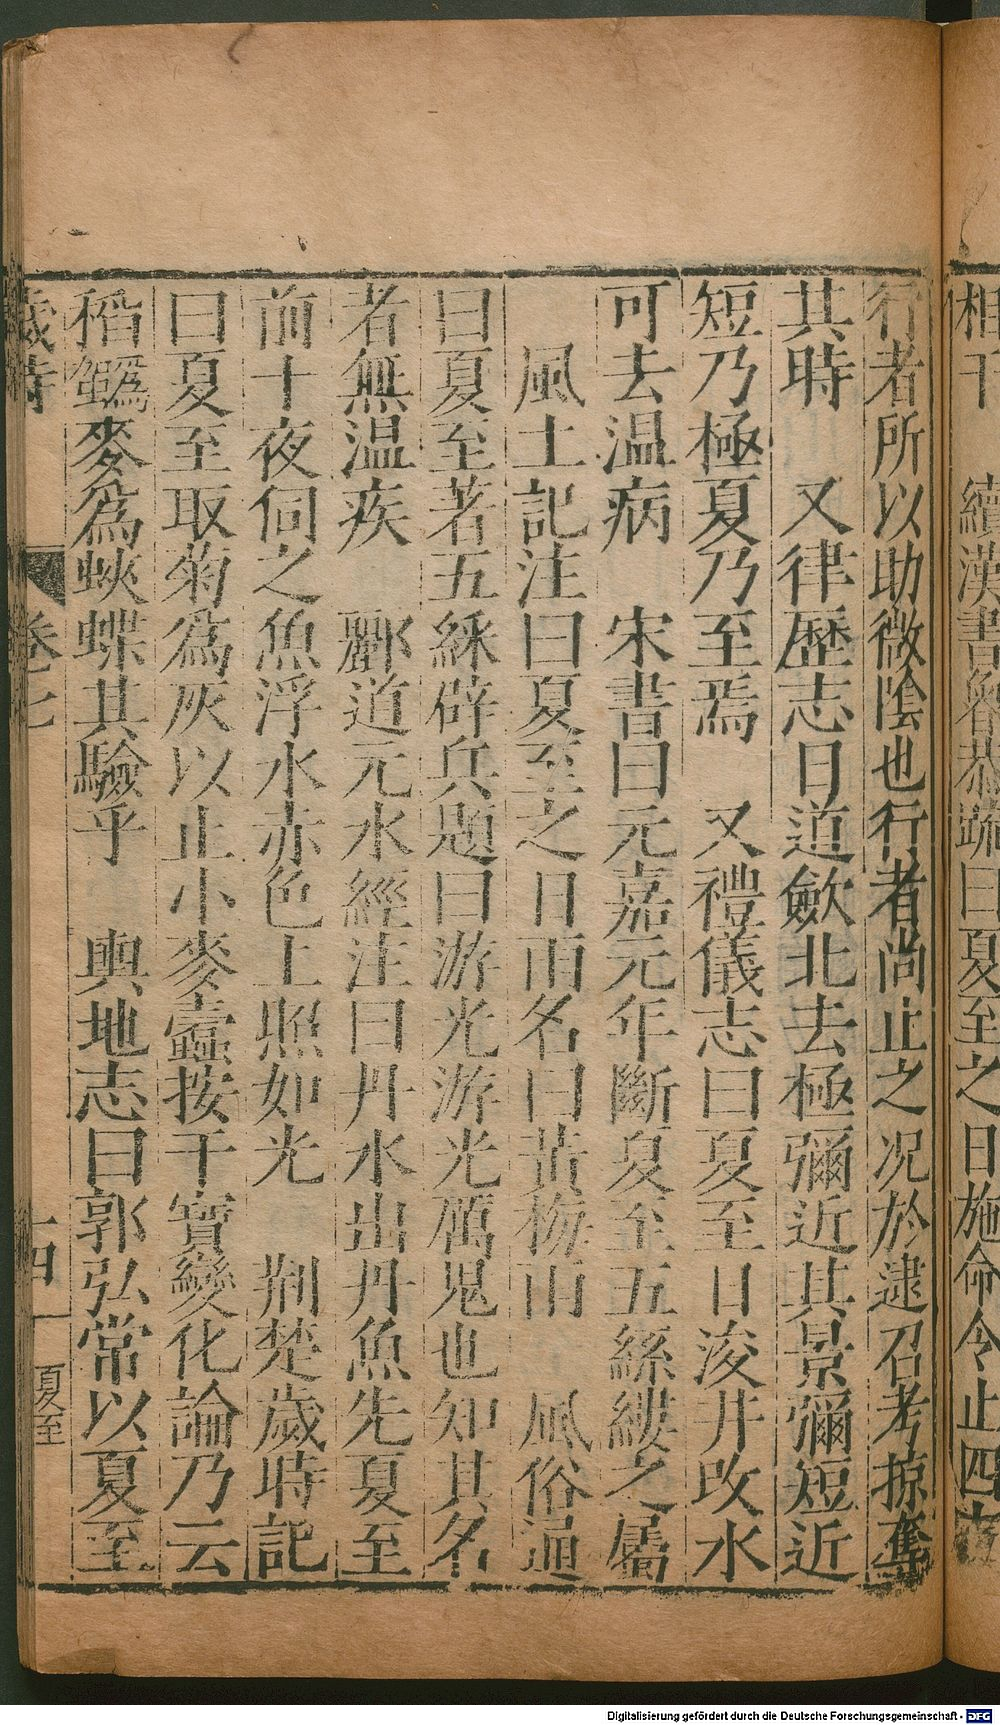 相干　續漢書魯恭疏曰夏至之日施命令止四方
行者所以助微陰也行者尚止之况於逮召考掠奪
其時　又律歷志曰道斂北去極彌近其景彌短近
短乃極夏乃至焉　又禮儀志曰夏至日浚井改水
可去温病　宋書曰元嘉元年斷夏至五絲縷之屬
風土記注曰夏至之日雨名曰黃梅雨　風俗通
曰夏至著五綵辟兵題曰游光游光厲鬼也知其名
者無温疾　酈道元水經注曰丹水出丹魚先夏至
前十夜伺之魚浮水赤色上照如光　荆楚歲時記
曰夏至取菊爲灰以止小麥蠹按干寶變化論乃云
稻爲䖝麥爲蛺蝶其驗乎　輿地志曰郭弘常以夏至
歲時
卷七
十四
夏至
Digitalisierung gefördert durch die Deutsche Forschungsgemeinschaft - DFG